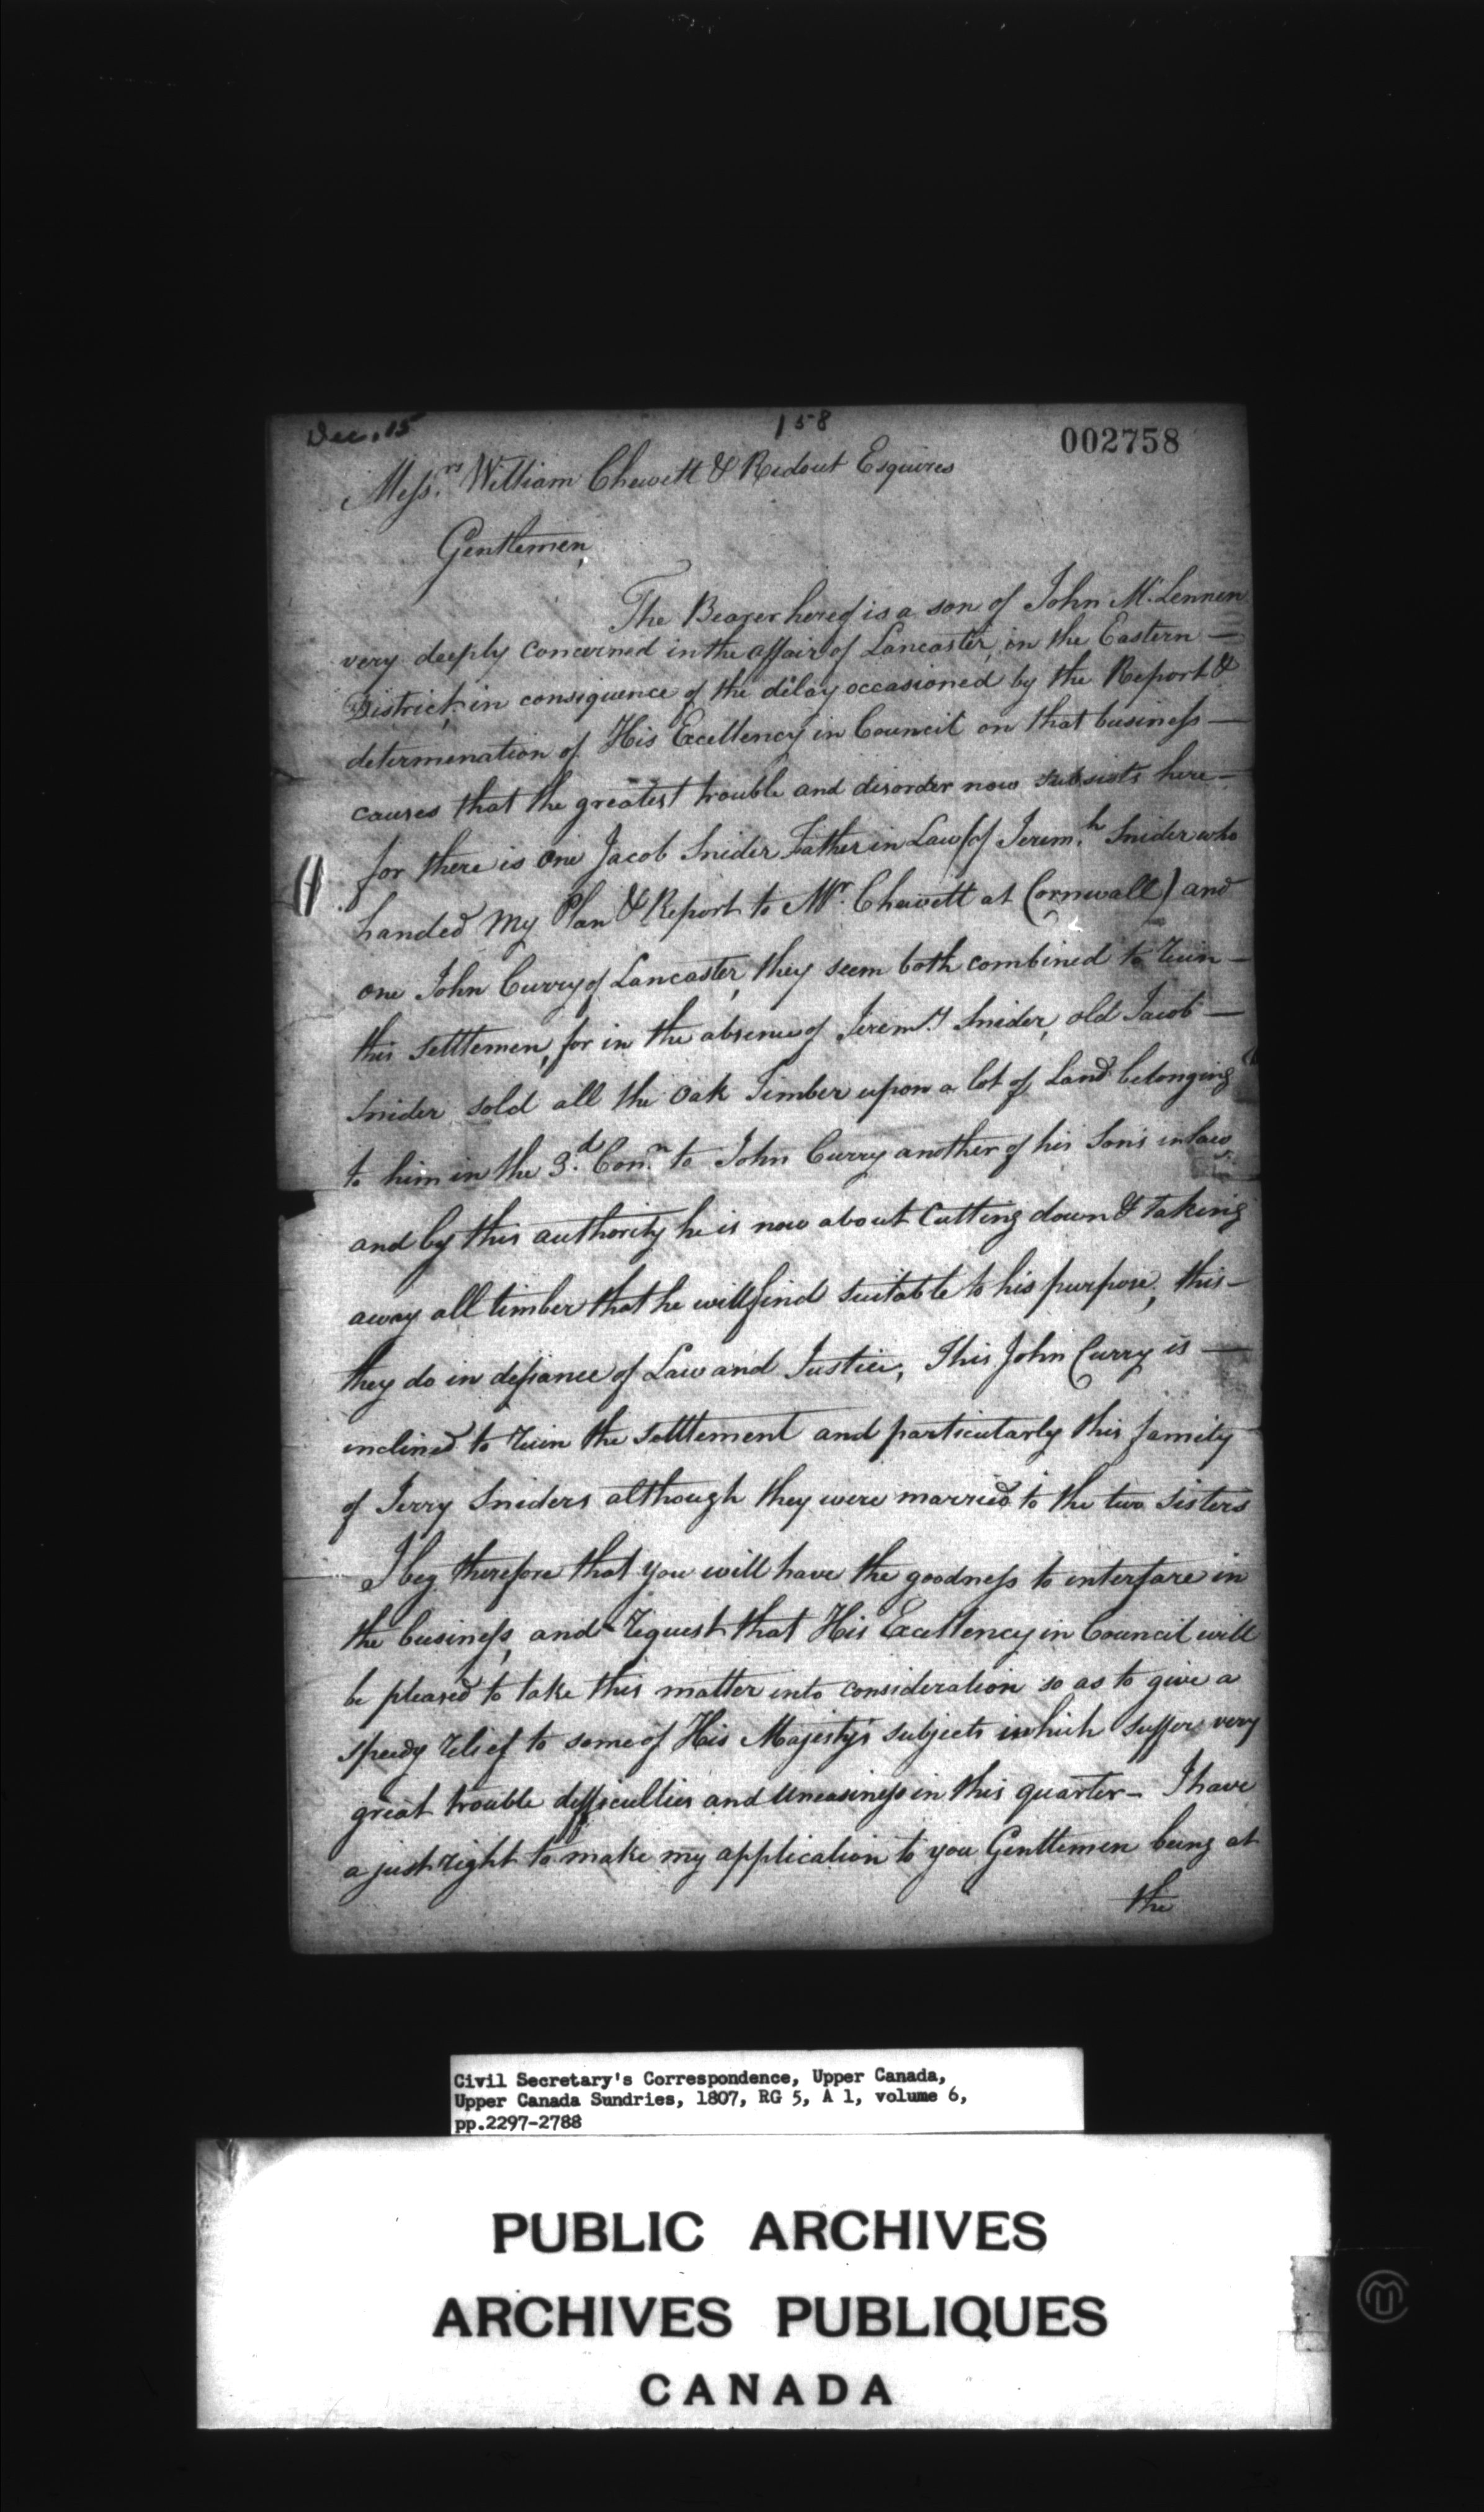 Dec. 15
158
002758
Mess.rs William Chewett & Ridout Esquires
Gentlemen,
The Bearer hereof is a son of John McLennen
very deeply concerned in the affair of Lancaster, in the Eastern —
District, in consiquence of the delay occasioned by the Report &
determenation of His Excellency in Council on that business —
causes that the greatest trouble and disorder now subsists here —
for there is One Jacob Snider Father in Law (of Jerem.h Snider who
handed my Plan & Report to Mr. Chewett at Cornwall) and
one John Curry of Lancaster, they seem both combined to ruin —
this settlemen, for in the absence of Jerem.y Snider, old Jacob —
Snider sold all the Oak Timber upon a lot of Land belonging
to him in the 3.d Con.n to John Curry another of his Sons in law
and by this authority he is now about Cutting down & taking
away all timber that he will find suitable to his purpose, this —
they do in defiance of Law and Justice, This John Curry is —
inclined to ruin the settlement and particularly this family
of Jerry Sniders although they were married to the two sisters
I beg therefore that you will have the goodness to interfare in
the business, and request that His Excellency in Council will
be pleased to take this matter into consideration so as to give a
speedy relief to some of His Majesty's subjects which suffer very
great trouble difficulties and Uneasiness in this quarter — I have
a just right to make my application to you Gentlemen being at
the
Civil Secretary's Correspondence, Upper Canada,
Upper Canada Sundries, 1807, RG 5, A 1, volume 6,
pp.2297-2788
PUBLIC ARCHIVES
ARCHIVES PUBLIQUES
CANADA